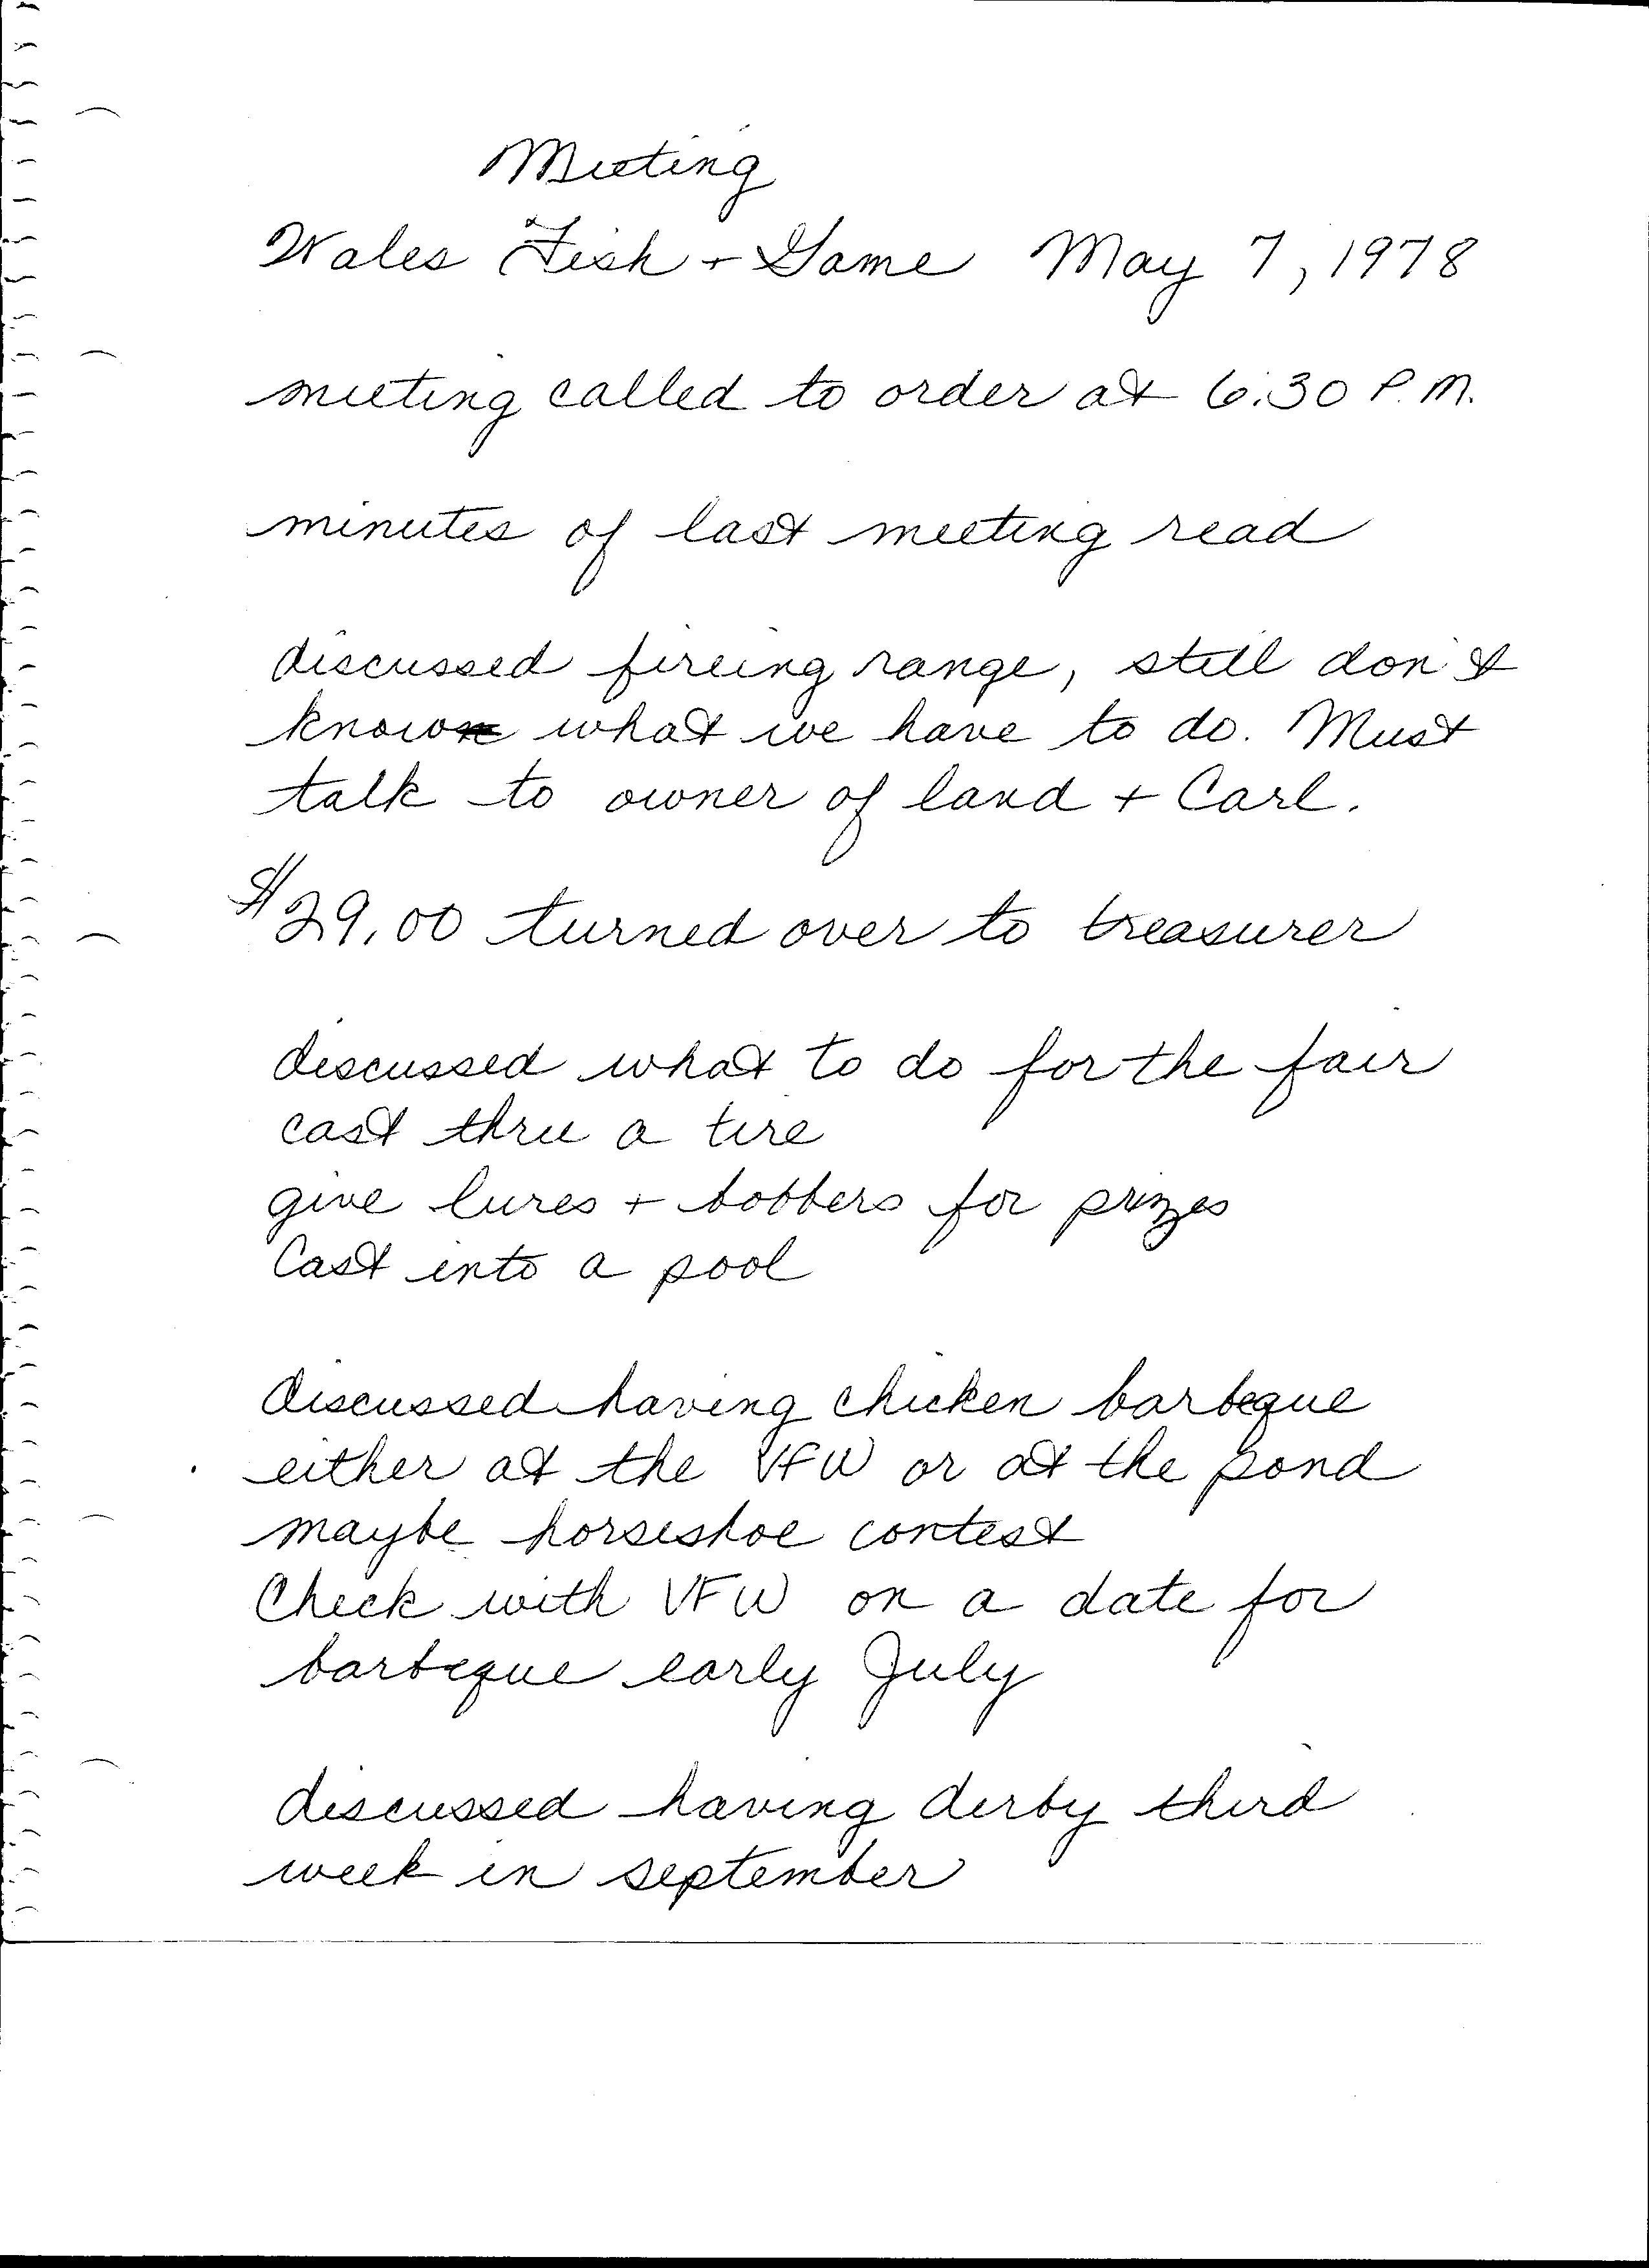 Meeting
Wales Fish + Game May 7, 1978
meeting called to order at 6:30 P.M.
minutes of last meeting read
discussed fireing range, still don't
know what we have to do. Must
talk to owner of land + Carl.
$29.00 turned over to treasurer
discussed what to do for the fair
cast thru a tire
give lures + bobbers for prizes
Cast into a pool
discussed having chicken barbeque
either at the VFW or at the pond
maybe horseshoe contest
Check with VFW on a date for
barbeque early July
discussed having derby third
week in september